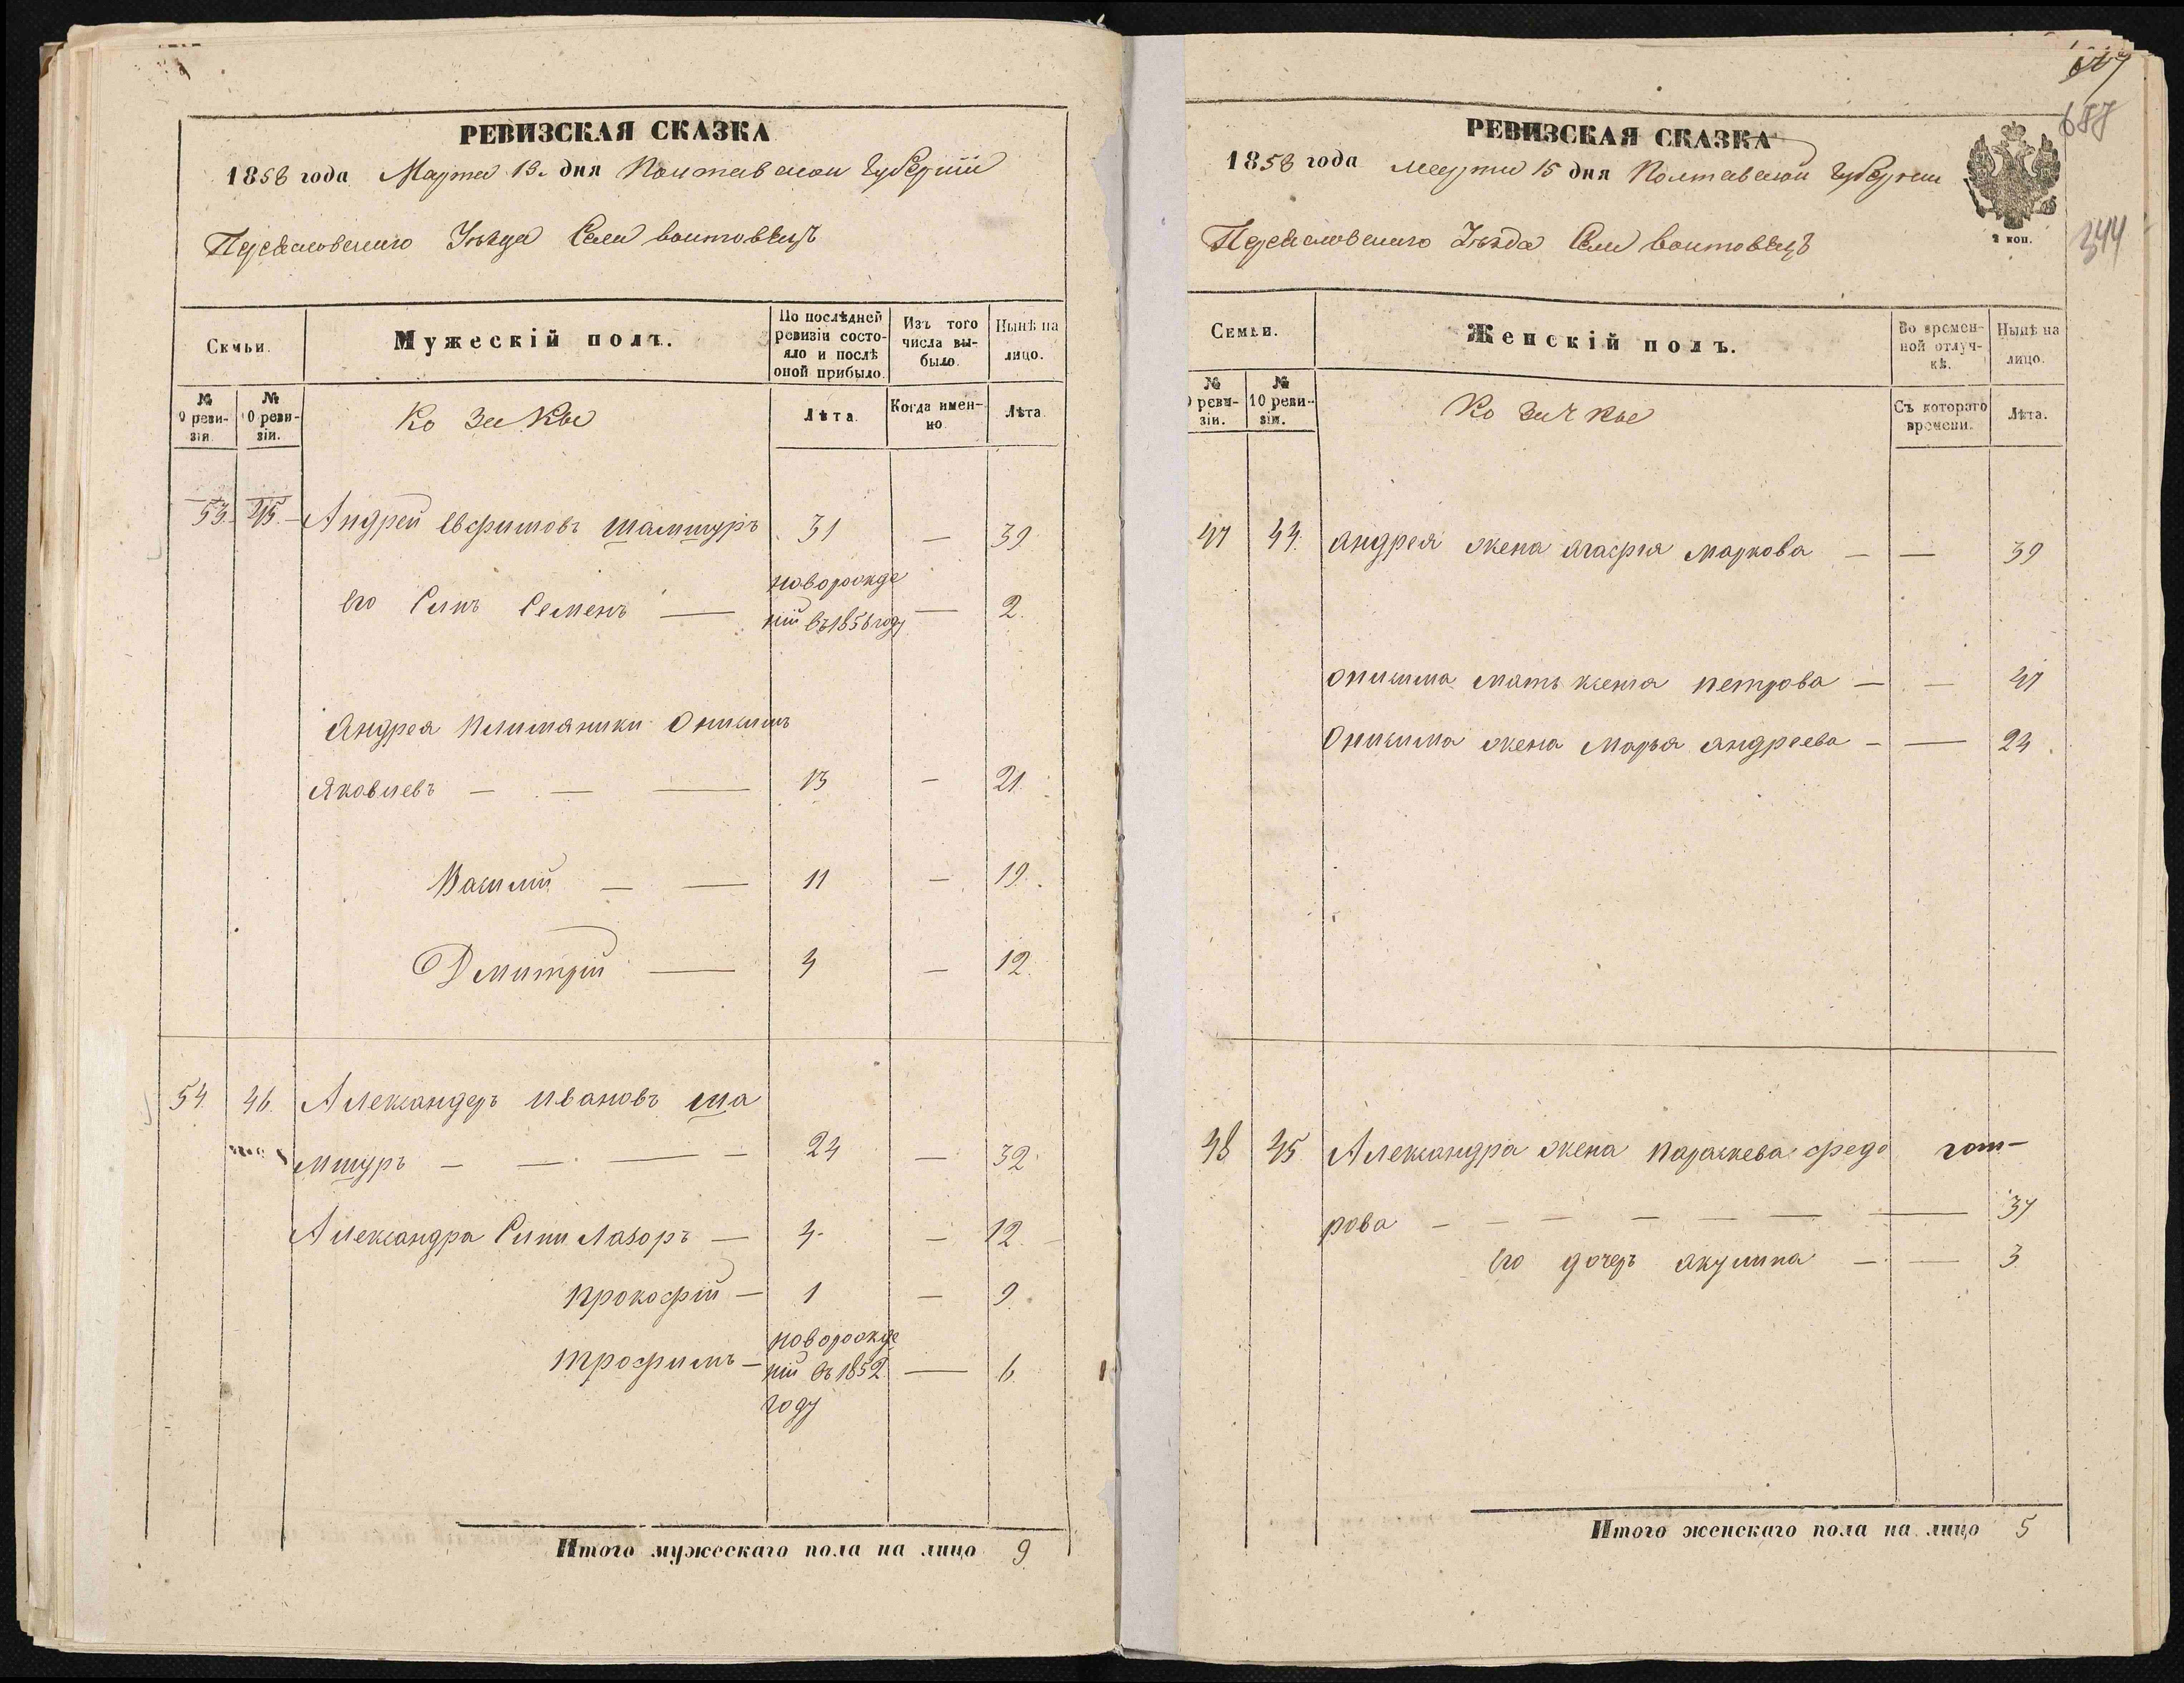 РЕВИЗСКАЯ СКАЗКА
1858 года Марта 15. дня Полтавской Губерніи
Переяславскаго Уѣзда Села Воитовецъ
Семьи.
Мужескій полъ.
По послѣдней ревизіи состояло и послѣ оной прибыло.
Изъ того числа выбыло.
Нынѣ на лицо.
№ 9 ревизіи.
№ 10 ревизіи.
Козаки
Лѣта.
Когда именно
Лѣта
53. 45. Андрей Евфимовъ Шамшуръ 31 — 39
Его Сынъ Семенъ — новорожде
ній въ 1856 году — 2.
Андрея Племяники Онисимъ
Яковлевъ — — — 13 — 21.
Василій — — 11 — 19.
Дмитрій — 4 — 12.
54. 46. Александеръ Ивановъ Ша
мшуръ — — — — 24 — 32
Александра Сыны Лазоръ — 4 — 12.
Прокофій — 1 — 9.
Трофимъ — новорожде
ній въ 1852 — 6.
году
Итого мужескаго пола на лицо 9
687
344
РЕВИЗСКАЯ СКАЗКА
1858 года Марта 15 дня Полтавской Губерніи
2 коп.
Переяславскаго Уѣзда Села Воитовецъ
Семьи.
Женскій полъ.
Во временной отлучкѣ.
Нынѣ на лицо.
№ 9 ревизіи.
№ 10 ревизіи.
Козачкы
Съ котораго времени.
Лѣта.
47 44. Андрея жена Агафія Маркова — — 39
Онисима мать Ксенія Петрова — — 47
Онисима жена Марья Андреева — — 24.
48 45 Александра жена Параскева Федо
рова — — — — — — — 37
Его дочеръ Акулина — — 3
Итого женскаго пола на лицо 5